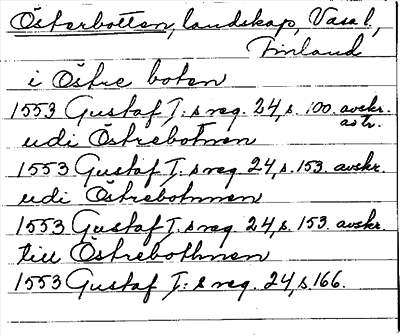 Österbotten, landskap, Vasa l.,
Finland
i Östre boten
1553 Gustaf I:s reg. 24, s. 100. avskr.
udi Östrebotnen
1553 Gustaf I:s reg. 24, s. 153. avskr.
udi Östrebotnnen
1553 Gustaf I:s reg. 24, s. 153. avskr.
till Östrebothnen
1553 Gustaf I:s reg. 24, s. 166.